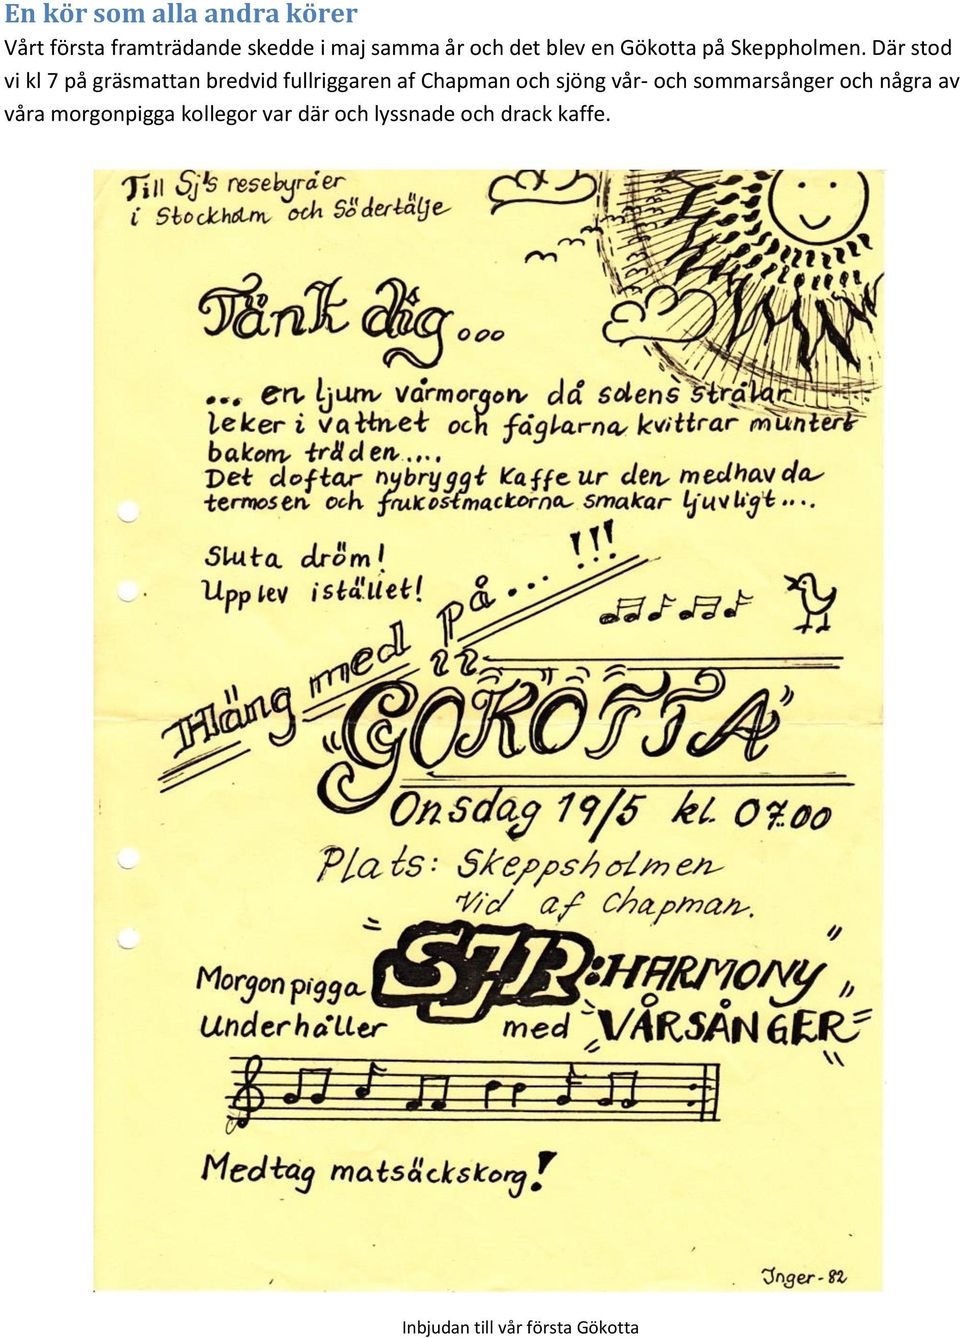 En kör som alla andra körer
Vårt första framträdande skedde i maj samma år och det blev en Gökotta på Skeppholmen. Där stod
vi kl 7 på gräsmattan bredvid fullriggaren af Chapman och sjöng vår- och sommarsånger och några av
våra morgonpigga kollegor var där och lyssnade och drack kaffe.
Till Sj's resebyråer
i Stockholm och Södertälje
Tänk dig...
... en ljum vårmorgon då solens strålar
leker i vattnet och fåglarna kvittrar muntert
bakom träden....
Det doftar nybryggt kaffe ur den medhavda
termosen och frukostmackorna smakar ljuvligt....
Sluta dröm!
Upplev istället!
Häng med på...!!!
"GÖKOTTA"
Onsdag 19/5 kl. 07.00
Plats: Skeppsholmen
Vid af Chapman.
Morgonpigga SJR:HARMONY
Underhåller med VÅRSÅNGER
Medtag matsäckskorg!
Inger-82
Inbjudan till vår första Gökotta